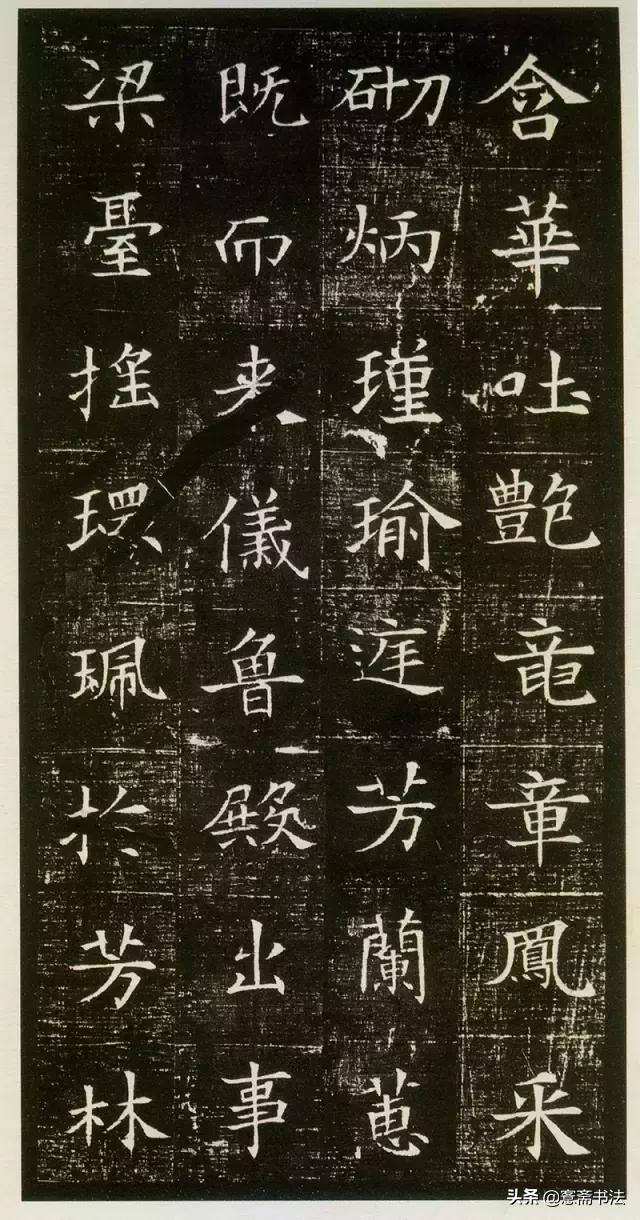 含華吐艶竜章鳳采
砌炳瑾瑜庭芳蘭蕙
既而来儀魯殿出事
梁臺搖環珮於芳林
头条 @意斋书法